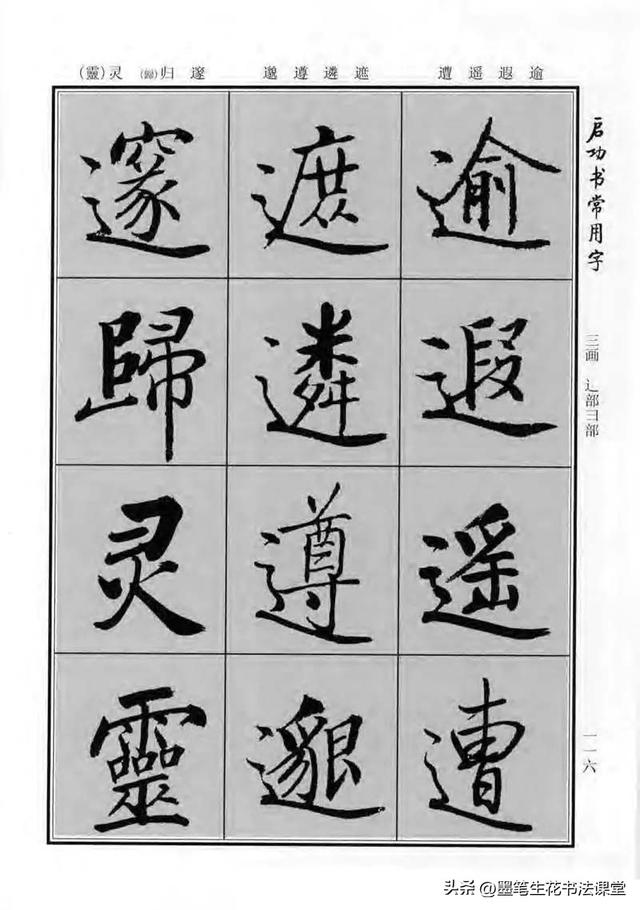 逾遐遥遭 遮遴遵邈 邃归(歸)灵(靈)
启功书常用字
三画 辶部彐部
一一六
逾遐遥遭
遮遴遵邈
邃歸灵靈
头条 @墨笔生花书法课堂